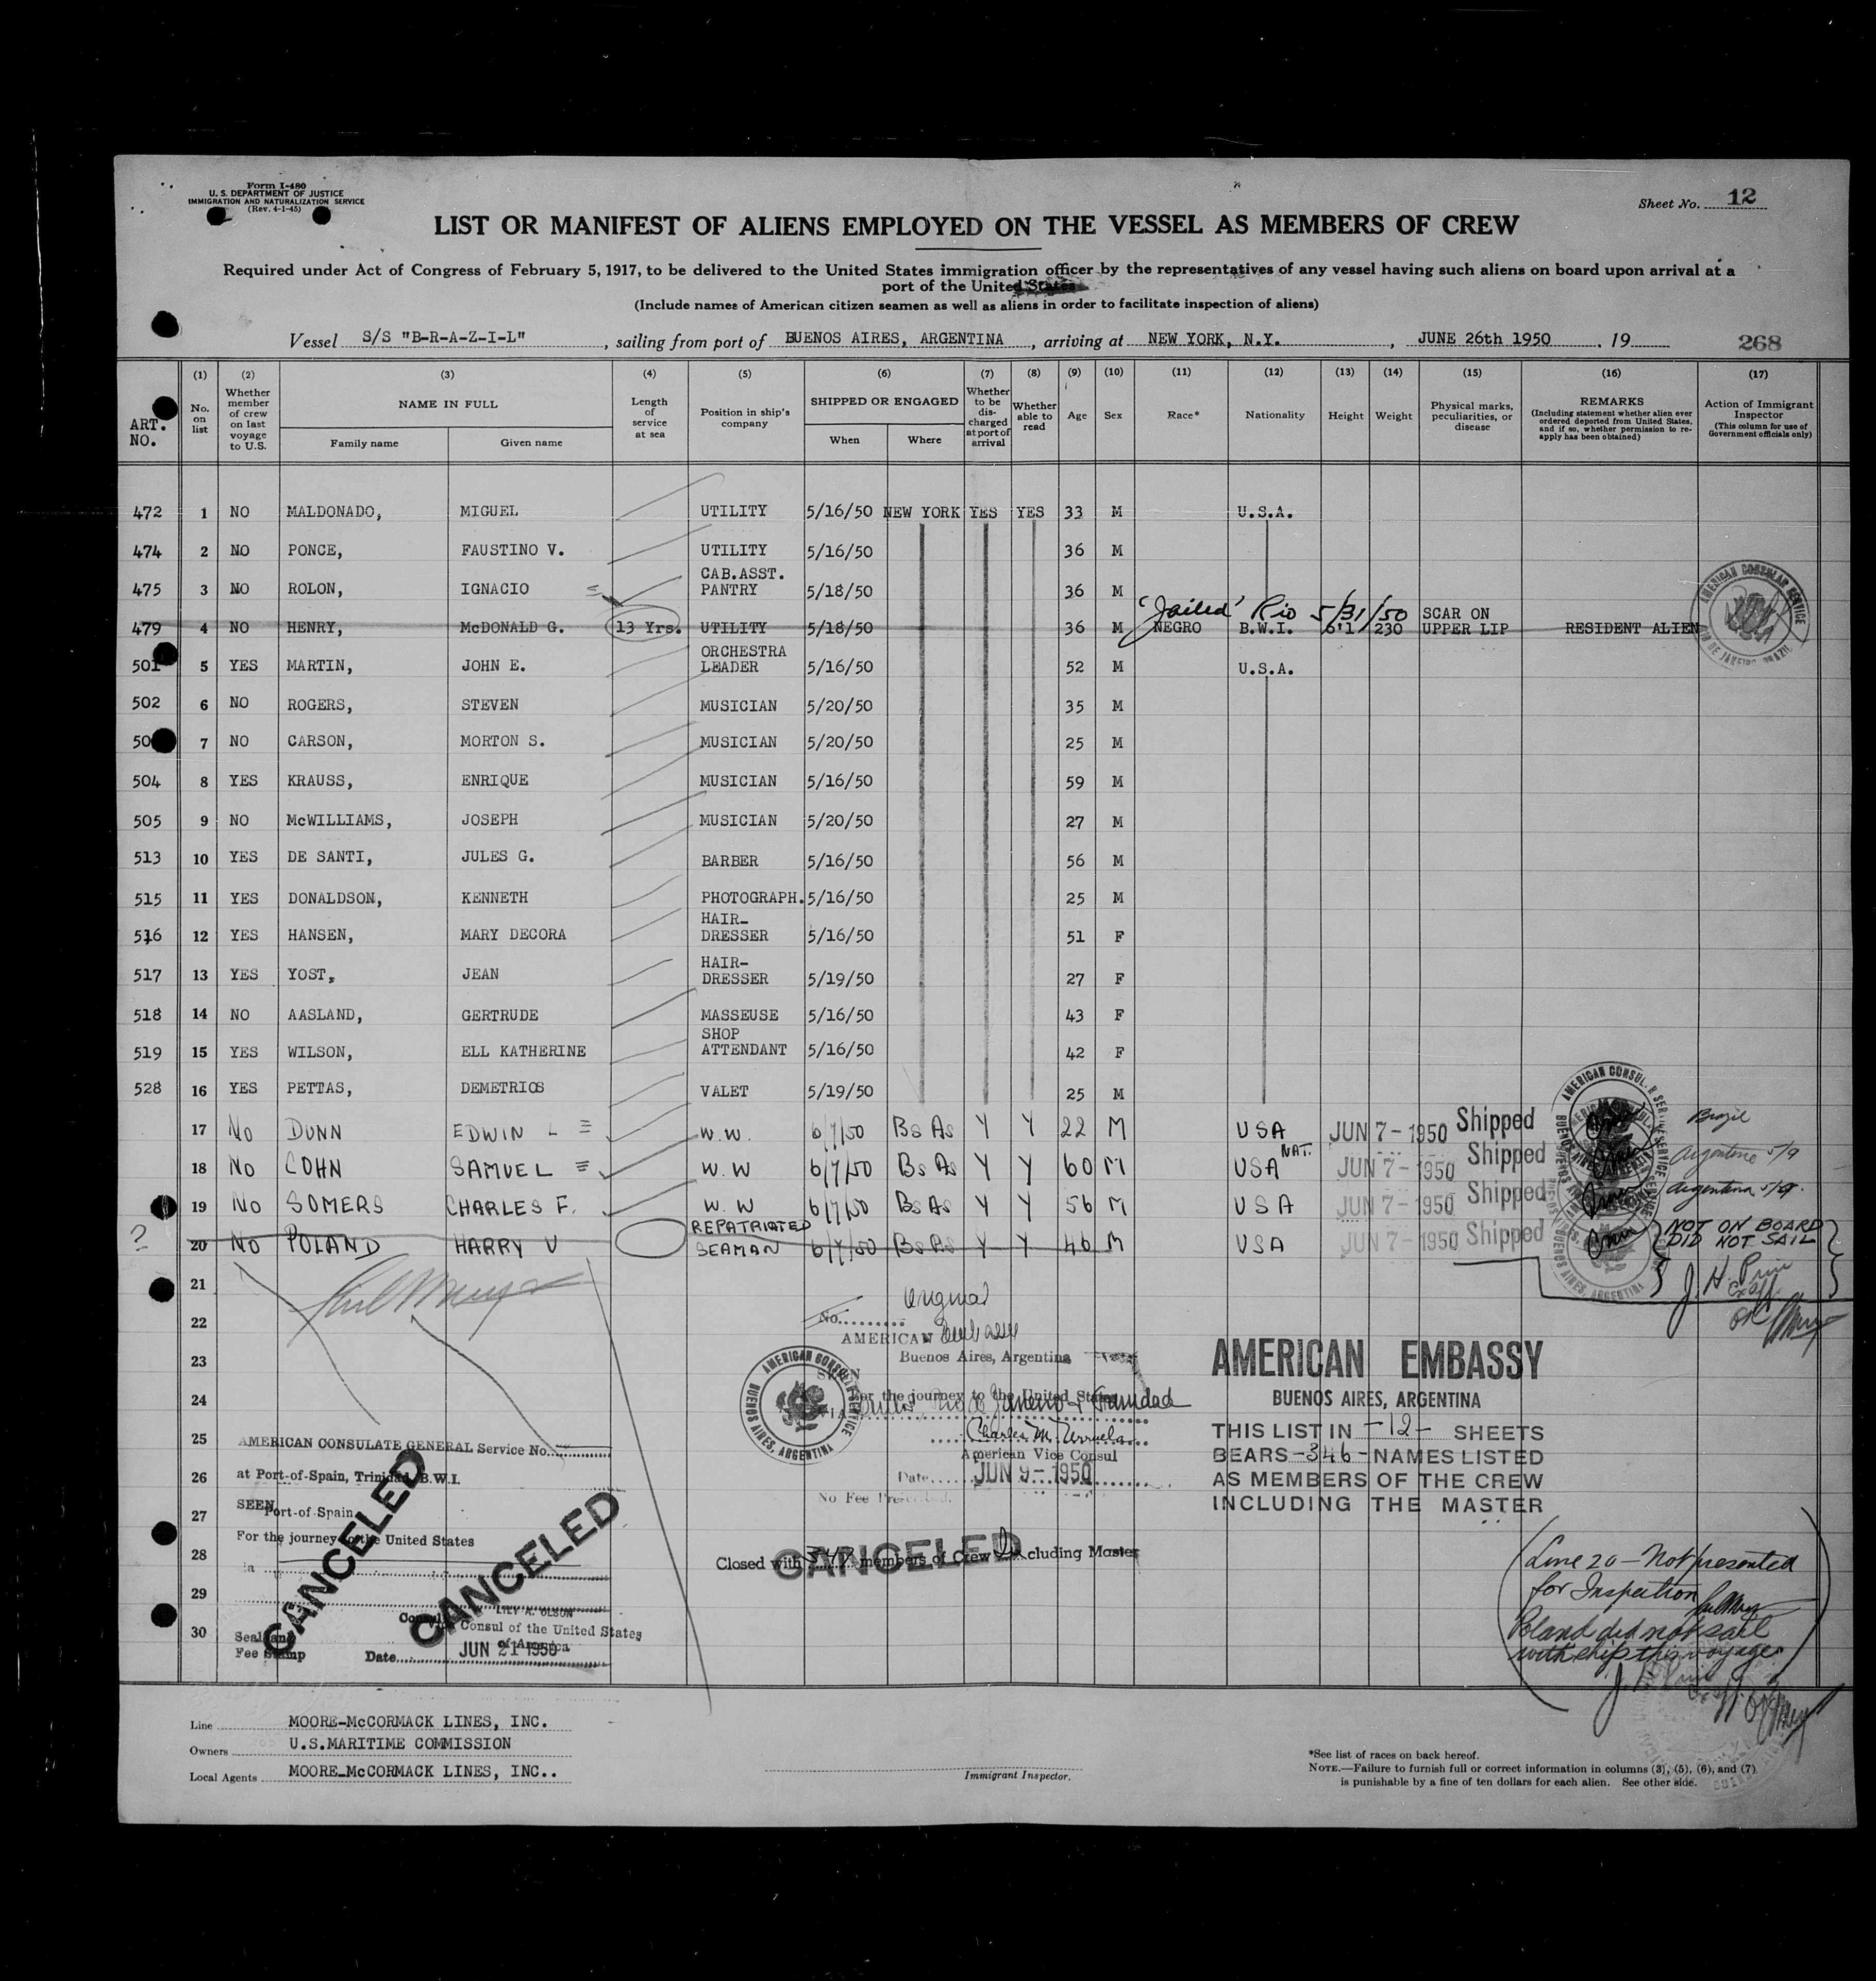 Form I-480
U. S. DEPARTMENT OF JUSTICE
IMMIGRATION AND NATURALIZATION SERVICE
(Rev. 4-1-45)
Sheet No. 12
LIST OR MANIFEST OF ALIENS EMPLOYED ON THE VESSEL AS MEMBERS OF CREW
Required under Act of Congress of February 5, 1917, to be delivered to the United States immigration officer by the representatives of any vessel having such aliens on board upon arrival at a
port of the United States
(Include names of American citizen seamen as well as aliens in order to facilitate inspection of aliens)
Vessel S/S "B-R-A-Z-I-L", sailing from port of BUENOS AIRES, ARGENTINA, arriving at NEW YORK, N.Y., JUNE 26th 1950, 19
268
ART. NO.
(1) No. on list
(2) Whether member of crew on last voyage to U.S.
(3) NAME IN FULL
Family name Given name
(4) Length of service at sea
(5) Position in ship's company
(6) SHIPPED OR ENGAGED
When Where
(7) Whether to be discharged at port of arrival
(8) Whether able to read
(9) Age
(10) Sex
(11) Race*
(12) Nationality
(13) Height
(14) Weight
(15) Physical marks, peculiarities, or disease
(16) REMARKS
(Including statement whether alien ever ordered deported from United States, and if so, whether permission to reapply has been obtained)
(17) Action of Immigrant Inspector
(This column for use of Government officials only)
472 1 NO MALDONADO, MIGUEL UTILITY 5/16/50 NEW YORK YES YES 33 M U.S.A.
474 2 NO PONCE, FAUSTINO V. UTILITY 5/16/50 36 M
475 3 NO ROLON, IGNACIO CAB.ASST. PANTRY 5/18/50 36 M
'Jailed' Rio 5/31/50
479 4 NO HENRY, McDONALD G. 13 Yrs. UTILITY 5/18/50 36 M NEGRO B.W.I. 6'1 230 SCAR ON UPPER LIP RESIDENT ALIEN
501 5 YES MARTIN, JOHN E. ORCHESTRA LEADER 5/16/50 52 M U.S.A.
502 6 NO ROGERS, STEVEN MUSICIAN 5/20/50 35 M
50 7 NO CARSON, MORTON S. MUSICIAN 5/20/50 25 M
504 8 YES KRAUSS, ENRIQUE MUSICIAN 5/16/50 59 M
505 9 NO McWILLIAMS, JOSEPH MUSICIAN 5/20/50 27 M
513 10 YES DE SANTI, JULES G. BARBER 5/16/50 56 M
515 11 YES DONALDSON, KENNETH PHOTOGRAPH. 5/16/50 25 M
516 12 YES HANSEN, MARY DECORA HAIR-DRESSER 5/16/50 51 F
517 13 YES YOST, JEAN HAIR-DRESSER 5/19/50 27 F
518 14 NO AASLAND, GERTRUDE MASSEUSE 5/16/50 43 F
519 15 YES WILSON, ELL KATHERINE SHOP ATTENDANT 5/16/50 42 F
528 16 YES PETTAS, DEMETRIOS VALET 5/19/50 25 M
17 No DUNN EDWIN L W.W. 6/7/50 Bs As Y Y 22 M USA JUN 7 - 1950 Shipped Brazil
18 No COHN SAMUEL W.W 6/7/50 Bs As Y Y 60 M USA NAT. JUN 7 - 1950 Shipped Argentina 5/9
19 No SOMERS CHARLES F. W.W 6/7/50 Bs As Y Y 56 M USA JUN 7 - 1950 Shipped Argentina 5/9.
? 20 No POLAND HARRY V REPATRIATED SEAMAN 6/7/50 Bs As Y Y 46 M USA JUN 7 - 1950 Shipped NOT ON BOARD DID NOT SAIL
21
22
23
24
25
26
27
28
29
30
AMERICAN CONSULAR SERVICE
RIO DE JANEIRO, BRAZIL
AMERICAN CONSULAR SERVICE
BUENOS AIRES, ARGENTINA
Original
No.
AMERICAN Embassy
Buenos Aires, Argentina
SEEN
For the journey to the United States
VIA Rio de Janeiro & Trinidad
American Vice Consul
Date JUN 9 - 1950
No Fee Prescribed.
AMERICAN CONSULAR SERVICE
BUENOS AIRES, ARGENTINA
AMERICAN EMBASSY
BUENOS AIRES, ARGENTINA
THIS LIST IN -12- SHEETS
BEARS -346- NAMES LISTED
AS MEMBERS OF THE CREW
INCLUDING THE MASTER
AMERICAN CONSULATE GENERAL Service No.
at Port-of-Spain, Trinidad, B.W.I.
SEEN Port-of Spain
For the journey to the United States
CANCELED
CANCELED
LILY A. OLSON
Consul of the United States
of America
Seal and
Fee Stamp
Date JUN 21 1950
Closed with members of Crew Including Master
CANCELED
Line 20 - Not presented
for Inspection
Poland did not sail
with ship this voyage
Line MOORE-McCORMACK LINES, INC.
Owners U.S.MARITIME COMMISSION
Local Agents MOORE-McCORMACK LINES, INC..
Immigrant Inspector.
*See list of races on back hereof.
NOTE.—Failure to furnish full or correct information in columns (3), (5), (6), and (7)
is punishable by a fine of ten dollars for each alien. See other side.